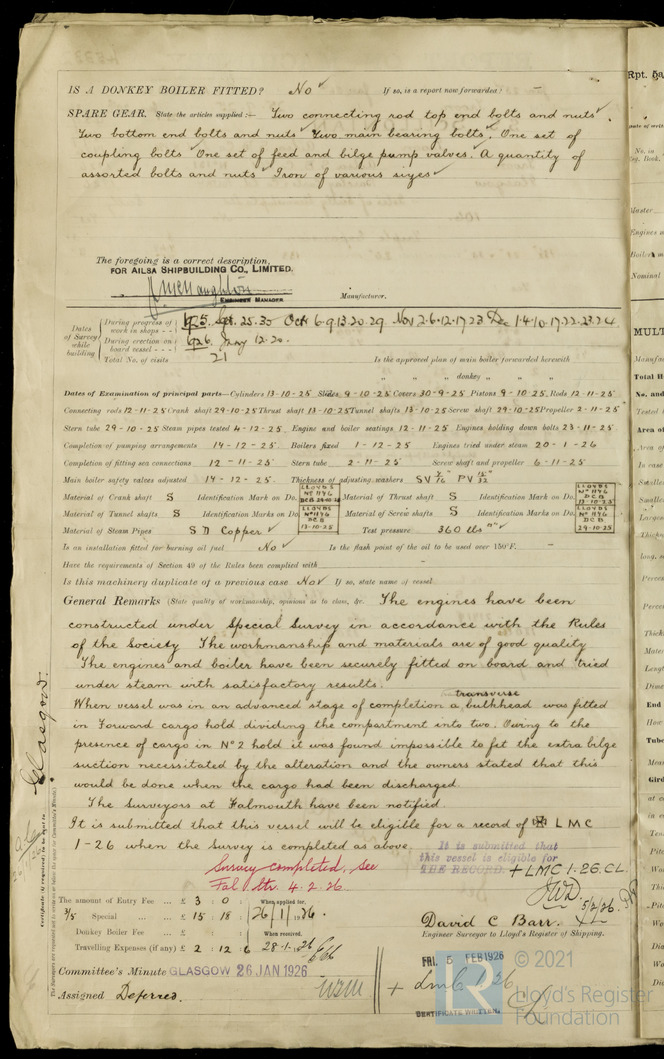 IS A DONKEY BOILER FITTED? No ✓ If so, is a report now forwarded? –
SPARE GEAR. State the articles supplied:— Two connecting rod top end bolts and nuts ✓.
Two bottom end bolts and nuts ✓ Two main bearing bolts ✓. One set of
coupling bolts ✓ One set of feed and bilge pump valves. ✓ A quantity of
assorted bolts and nuts ✓ Iron of various sizes ✓
The foregoing is a correct description,
FOR AILSA SHIPBUILDING CO., LIMITED.
ENGINEER MANAGER Manufacturer.
Dates of Survey while building
During progress of work in shops - - 1925. 25.30 Oct 6.9.13.20.29 Nov 2.6.12.17.23 Dec 1.4.10.17.22.23.24
During erection on board vessel - - - 1926. Jany 12.20.
Total No. of visits 21
Is the approved plan of main boiler forwarded herewith
" " " donkey " " "
Dates of Examination of principal parts—Cylinders 13-10-25 Slides 9-10-25 Covers 30-9-25 Pistons 9-10-25. Rods 12-11-25
Connecting rods 12-11-25 Crank shaft 29-10-25 Thrust shaft 13-10-25 Tunnel shafts 13-10-25 Screw shaft 29-10-25 Propeller 2-11-25
Stern tube 29-10-25 Steam pipes tested 4-12-25 Engine and boiler seatings 12-11-25 Engines holding down bolts 23-11-25
Completion of pumping arrangements 14-12-25 Boilers fixed 1-12-25 Engines tried under steam 20-1-26
Completion of fitting sea connections 12-11-25 Stern tube 2-11-25 Screw shaft and propeller 6-11-25
Main boiler safety valves adjusted 14-12-25. Thickness of adjusting washers
Material of Crank shaft S Identification Mark on Do. Material of Thrust shaft S Identification Mark on Do.
Material of Tunnel shafts S Identification Marks on Do. LLOYDS No 1146 DCB 13-10-25 Material of Screw shafts S Identification Marks on Do. LLOYDS No 1146 DCB 29-10-25
Material of Steam Pipes S D Copper ✓ Test pressure 360 lbs ✓
Is an installation fitted for burning oil fuel No ✓ Is the flash point of the oil to be used over 150°F.
Have the requirements of Section 49 of the Rules been complied with
Is this machinery duplicate of a previous case No ✓ If so, state name of vessel
General Remarks (State quality of workmanship, opinions as to class, &c. The engines have been
constructed under Special Survey in accordance with the Rules
of the Society The workmanship and materials are of good quality
The engines and boiler have been securely fitted on board and tried
under steam with satisfactory results.
When vessel was in an advanced stage of completion a transverse bulkhead was fitted
in Forward cargo hold dividing the compartment into two. Owing to the
presence of cargo in No 2 hold it was found impossible to fit the extra bilge
suction necessitated by the alteration and the owners stated that this
would be done when the cargo had been discharged.
The Surveyors at Falmouth have been notified
It is submitted that this vessel will be eligible for a record of ✠ LMC
1-26 when the Survey is completed as above.
It is submitted that
this vessel is eligible for
THE RECORD. + LMC 1.26. CL.
Survey completed, see
Fal ltr. 4.2.26.
5/2/26.
The amount of Entry Fee ... £ 3 : 0 : When applied for,
3/5 Special ... ... £ 15 : 18 : 26/1/1926.
Donkey Boiler Fee ... £ : : When received,
Travelling Expenses (if any) £ 2 : 12 : 6 28.1.26
David C Barr.
Engineer Surveyor to Lloyd's Register of Shipping.
Committee's Minute GLASGOW 26 JAN 1926
FRI. 5 FEB 1926
Assigned Deferred.
+ Lmc 1.26
CERTIFICATE WRITTEN.
Glasgow.
© 2021
Lloyd's Register
Foundation
Rpt. 5a
MULT